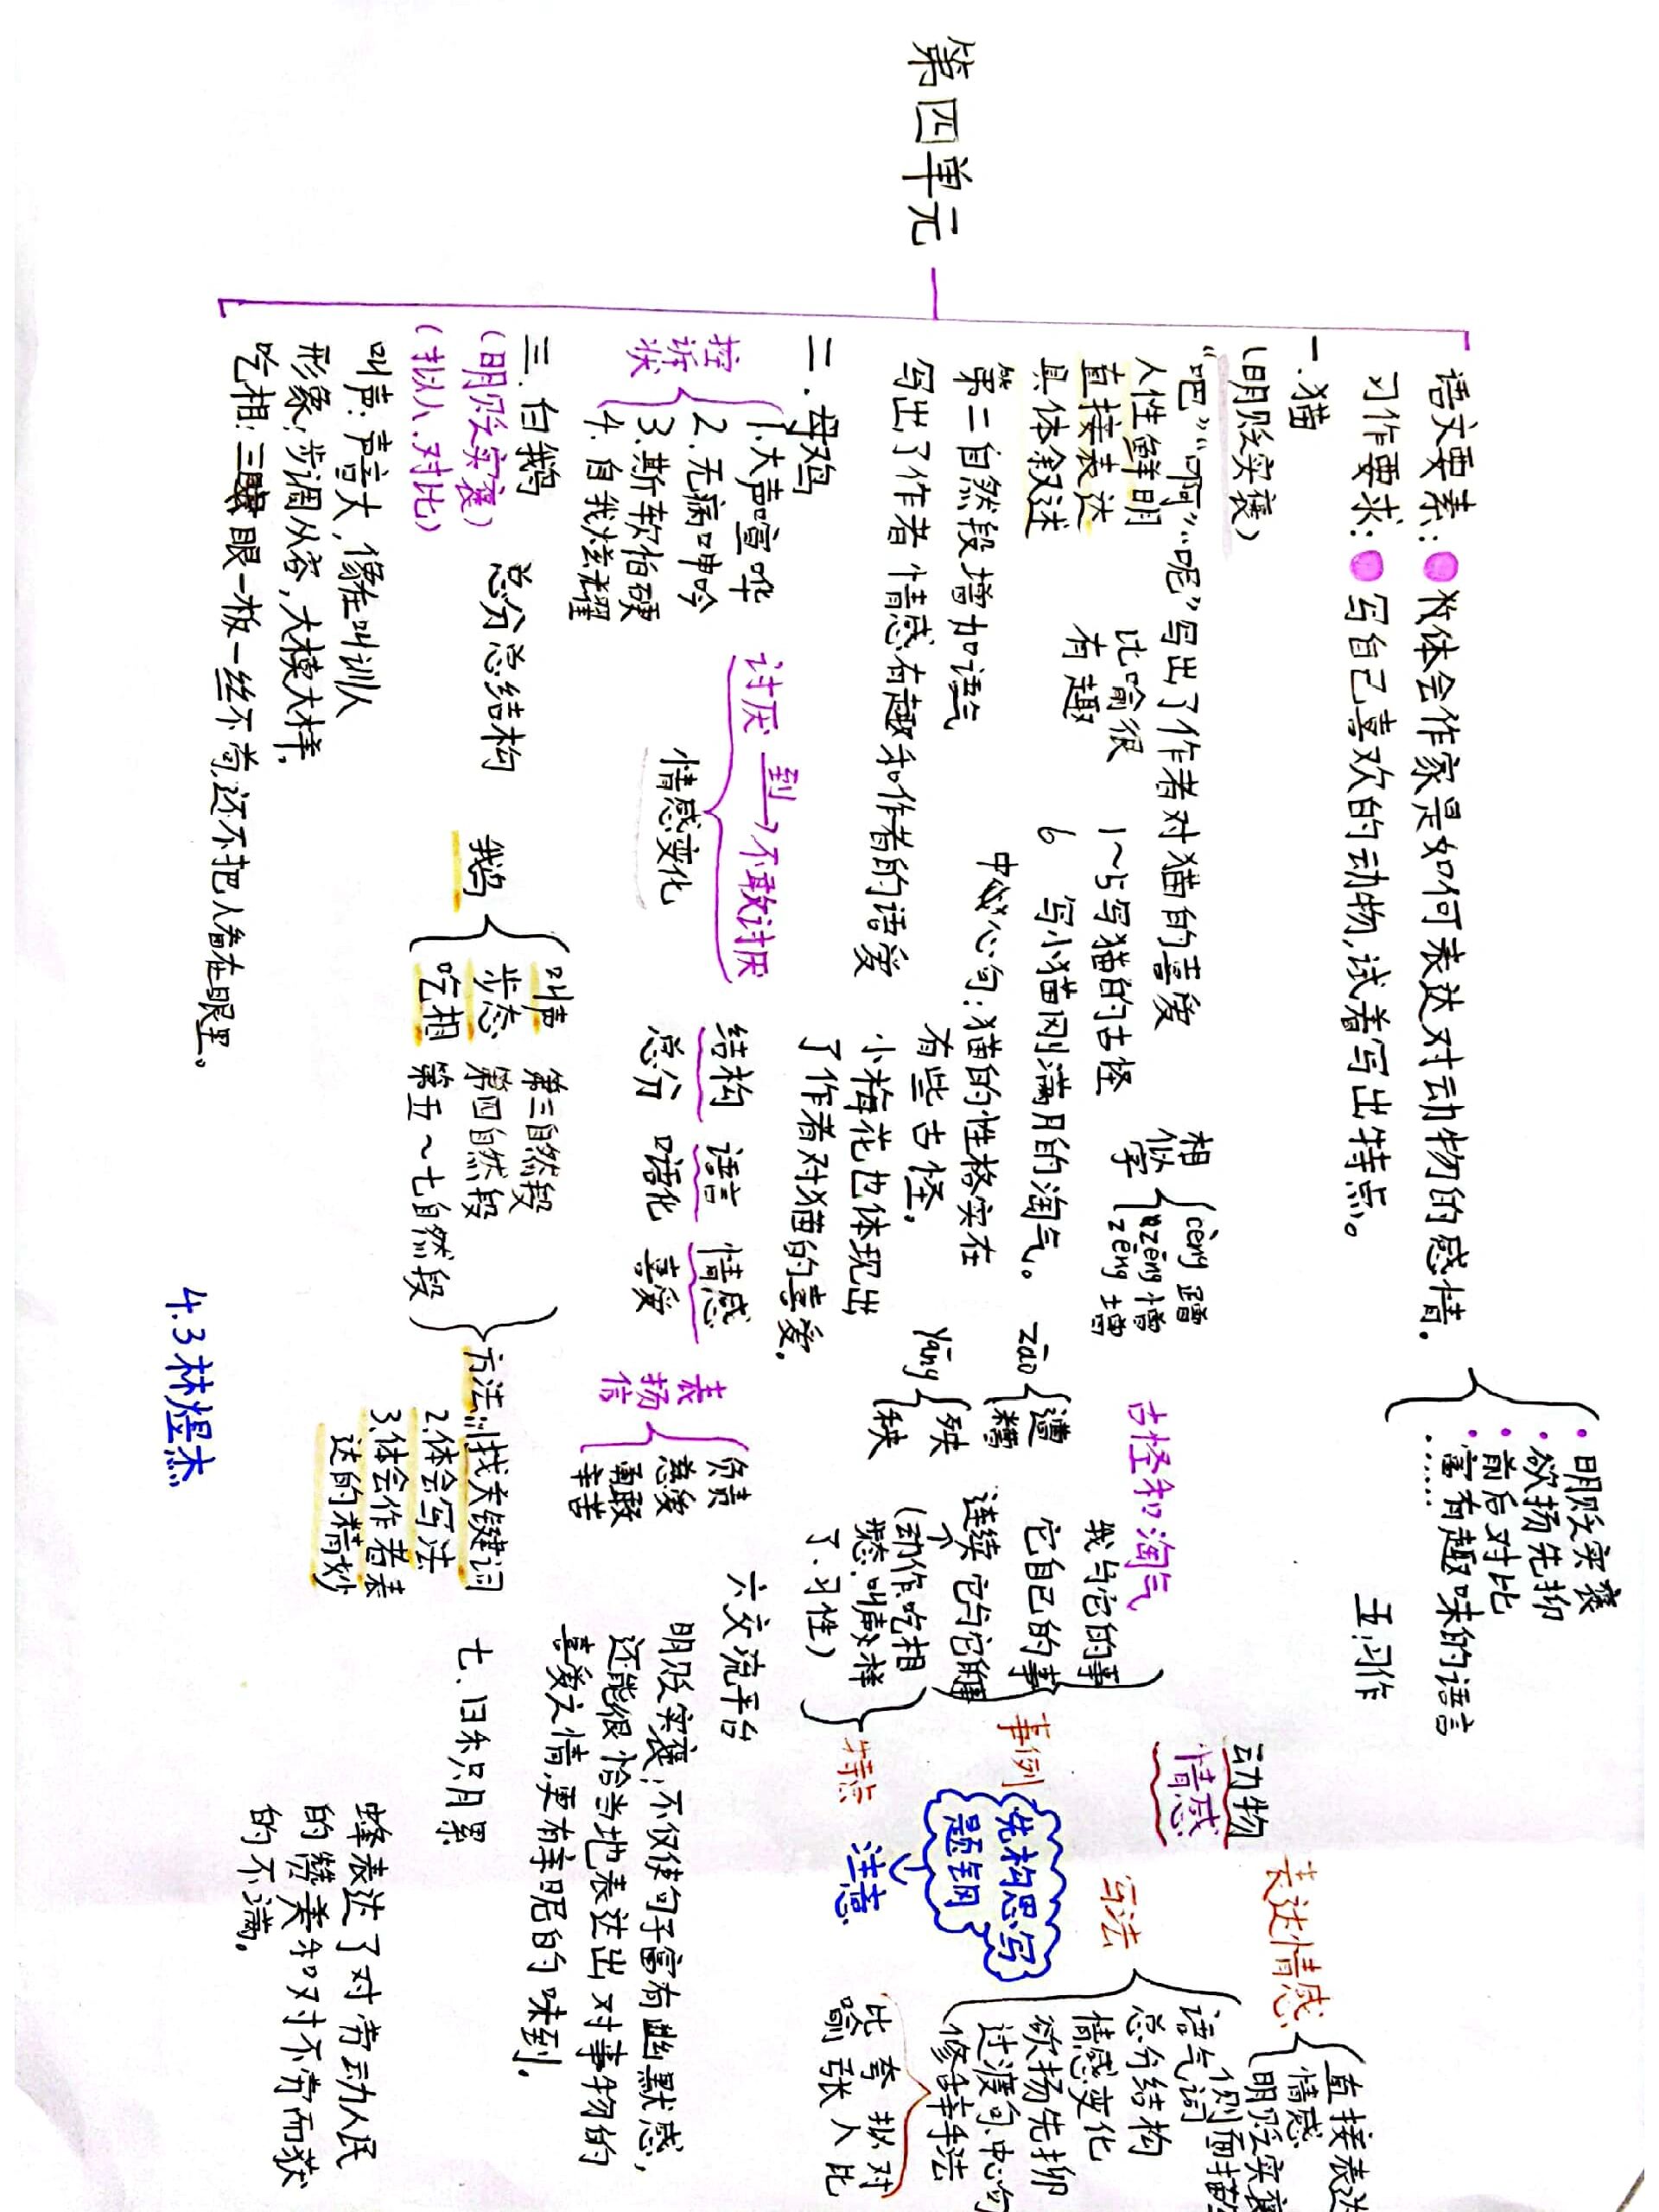 第四单元
语文要素:
体会作家是如何表达对动物的感情.
习作要求:
写自己喜欢的动物,试着写出特点。
明贬实褒
欲扬先抑
前后对比
富有趣味的语言
……
一.猫
(明贬实褒)
“吧”“啊”“呢”写出了作者对猫的喜爱
人性鲜明
直接表达
具体叙述
比喻很
有趣
1~5写猫的古怪
6 写小猫刚满月的淘气。
第二自然段增加语气
写出了作者情感有趣和作者的语爱
心句:猫的性格实在
有些古怪.
小梅花也体现出
了作者对猫的喜爱.
相
似
字
cèng 蹭
zēng 憎
zēng 增
zāo
遭
糟
yāng
殃
秧
古怪和淘气
二.母鸡
控
诉
状
1.大声喧哗
2.无病呻吟
3.斯软怕硬
4.自我炫耀
讨厌 到→不敢讨厌
情感变化
结构 语言 情感
总分 口语化 喜爱
表
扬
信
负责
慈爱
勇敢
辛苦
三.白我鸟
(明贬实褒)
(拟人.对比)
总分总结构
鹅
叫声 第三自然段
步态 第四自然段
吃相 第五~七自然段
方法:
1.找关键词
2.体会写法
3.体会作者表
达的精妙
叫声:声音大,像在叫训人
形象:步调从容,大模大样.
吃相:三眼一板一丝不苟,还不把人看在眼里。
五.习作
动物
情感
表达情感
直接表达
情感
语气词
总分结构
情感变化
欲扬先抑
过渡句.中心句
修辞手法
写法
比 夸 拟 对
喻 张 人 比
我与它的事
它自己的事
事例
(动作.吃相
了.习性)
特点
先构思写
题钢
注意
六交流平台
明贬实褒,不仅使句子富有幽默感,
还能很恰当地表达出对事物的
喜爱之情,更有亲昵的味到.
七、日积月累
蜂表达了对劳动人民
的赞美和对不劳而获
的不满.
4.3林煜杰